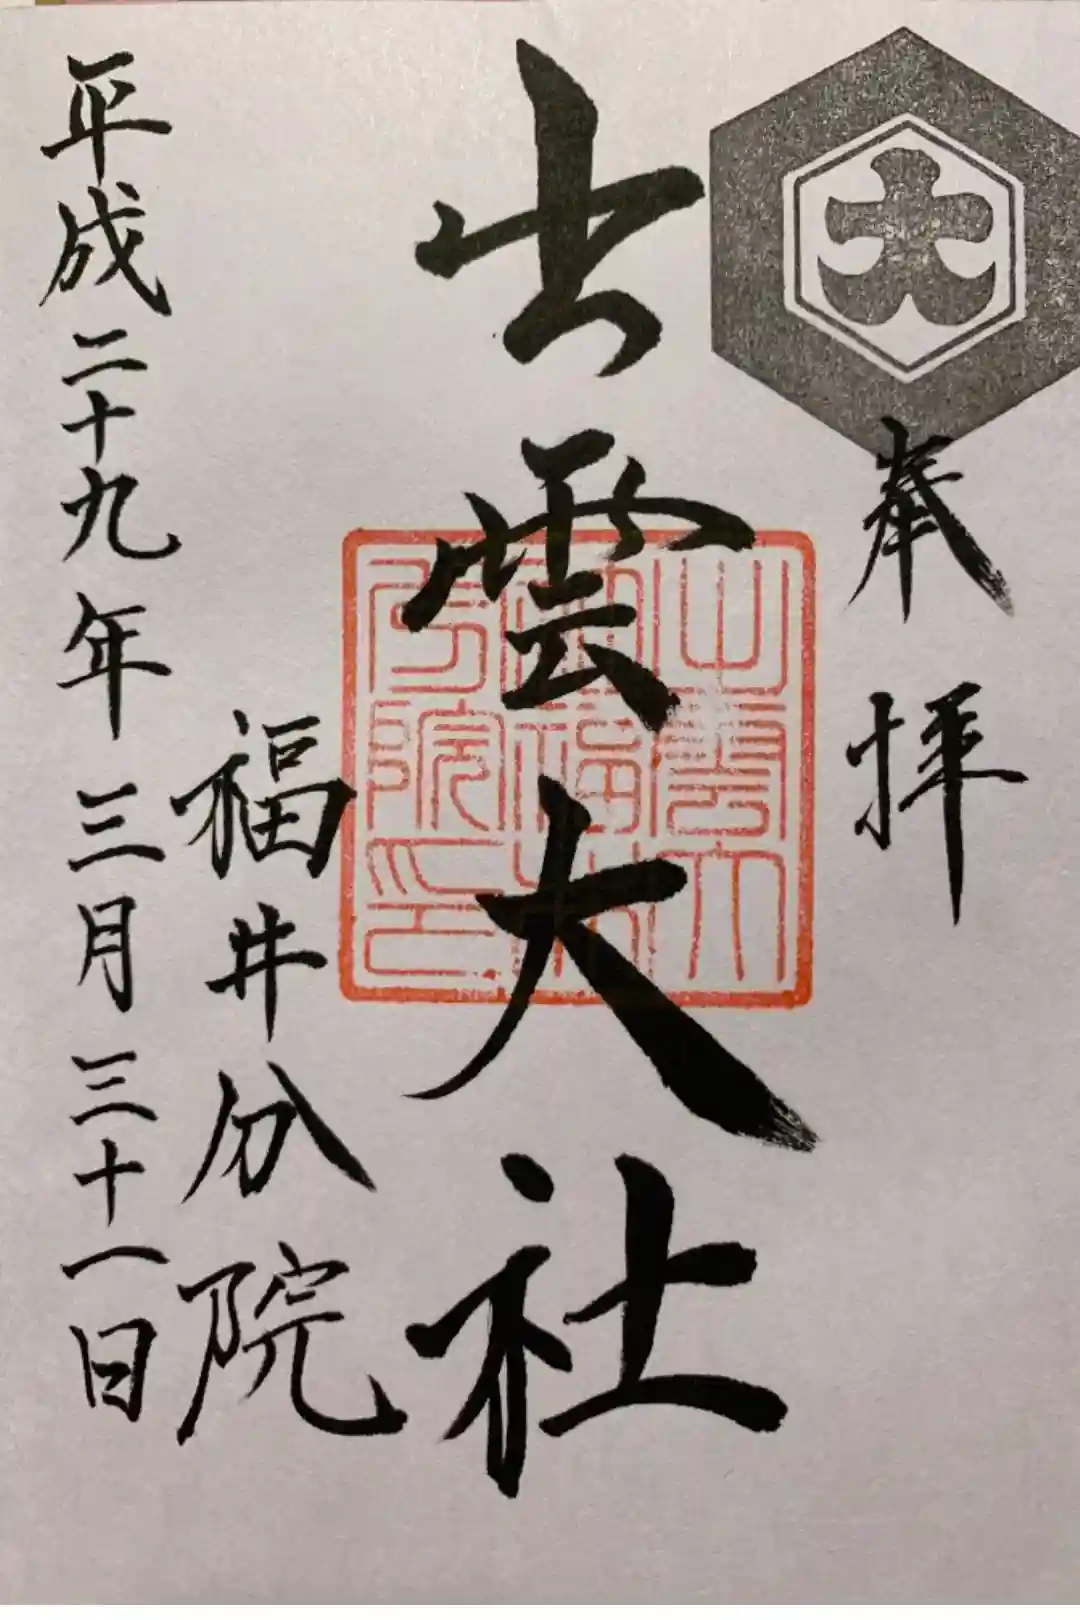 大
奉拝
出雲大社
出雲大
社福井
分院印
福井分院
平成二十九年三月三十一日